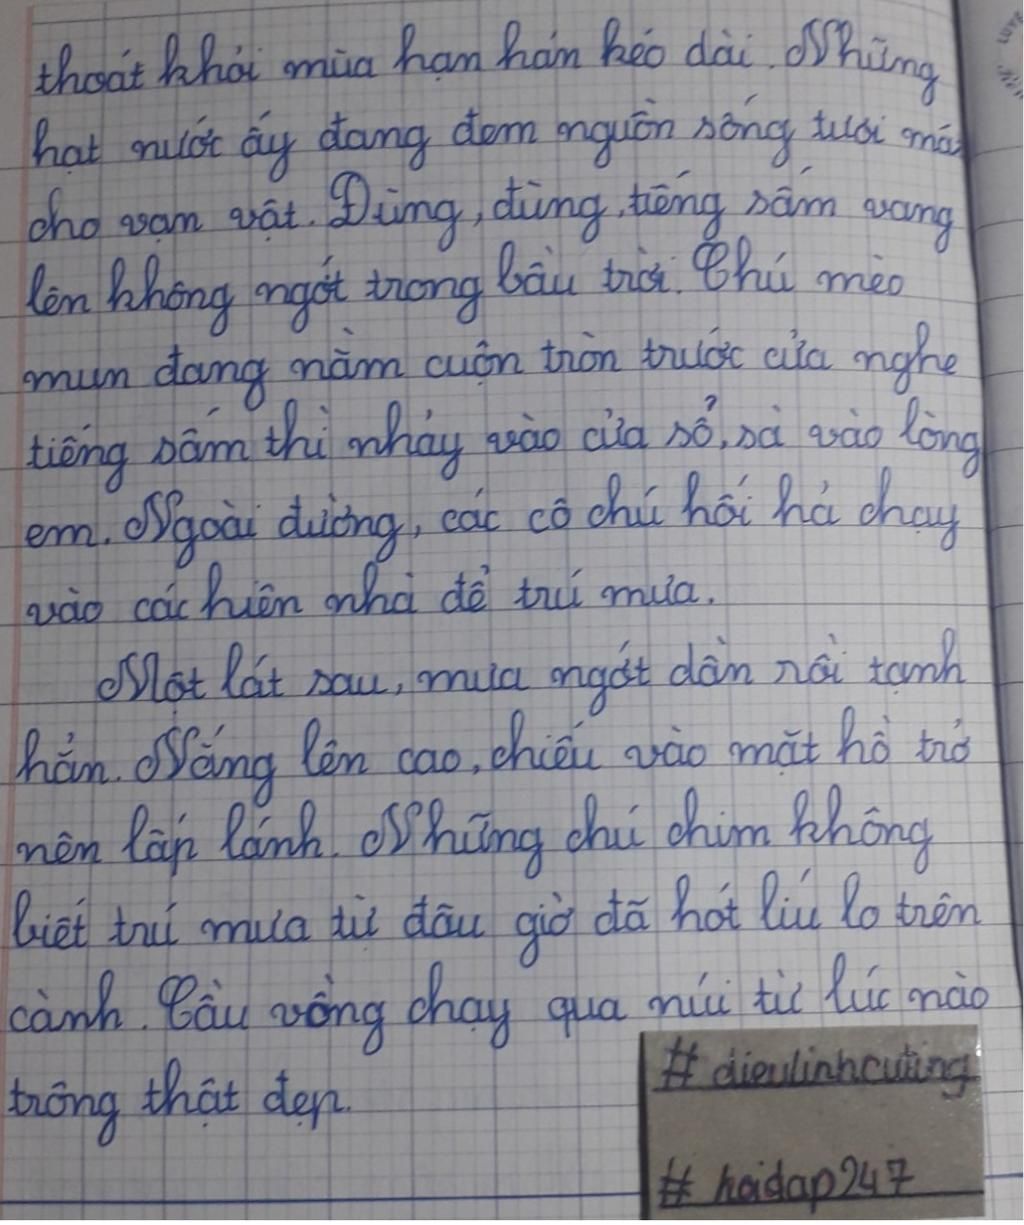 thoát khỏi mùa hạn hán kéo dài. Những
hạt nước ấy đang đem nguồn sống tươi mát
cho vạn vật. Đùng, đùng, tiếng sấm vang
lên không ngớt trong bầu trời. Chú mèo
mun đang nằm cuộn tròn trước cửa nghe
tiếng sấm thì nhảy vào cửa sổ, sà vào lòng
em. Ngoài đường, các cô chú hối hả chạy
vào các hiên nhà để trú mưa.
Một lát sau, mưa ngớt dần rồi tạnh
hẳn. Nắng lên cao, chiếu vào mặt hồ trở
nên lấp lánh. Những chú chim không
biết trú mưa từ đâu giờ đã hót líu lo trên
cành. Cầu vồng chạy qua núi từ lúc nào
trông thật đẹp.
# dieulinhcuting
# hoidap247